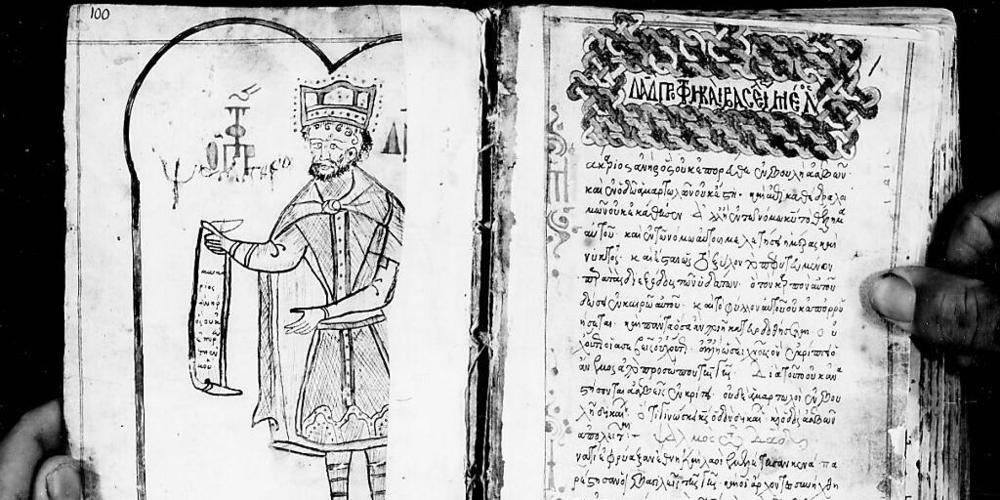 100
Ο ΠΡΟ
μακα
ριος
ανηρ
ος ουκ
ε
πορ
ΔΑΔ ΠΡΟΦΗ ΚΑΙ ΒΑCΙ ΜΕΛ
ακάριος ἀνὴρ ὃς οὐκ ἐπορεύθη ἐν βουλῇ ἀσεβῶν
καὶ ἐν ὁδῶ ἁμαρτωλῶν οὐκ ἔστη· καὶ ἐπὶ καθέδρα λοι
μῶν οὐκ ἐκάθισεν· Ἀλλ' ἢ ἐν τῶ νόμω κυ τὸ θέλημα
αὐτοῦ· καὶ ἐν τῶ νόμω αὐτοῦ μελετήσει ἡμέρας καὶ
νυκτός· καὶ ἔσται ὡς τὸ ξύλον τὸ πεφυτευμένον
παρὰ τὰς διεξόδους τῶν ὑδάτων· ὃ τὸν καρπὸν αὐτοῦ
δώσει ἐν καιρῶ αὐτοῦ· καὶ τὸ φύλλον αὐτοῦ οὐκ ἀπορρυ
ήσεται· καὶ πάντα ὅσα ἂν ποιῆ κατευοδωθήσεται· Οὐ
οὕτως οἱ ἀσεβεῖς οὐχ οὕτως· ἀλλ' ἢ ὡσεὶ χνοῦς ὃν ἐκρίπτει ὁ
ἄνεμος ἀπὸ προσώπου τῆς γῆς· Διὰ τοῦτο οὐκ ἀνα
στήσονται ἀσεβεῖς ἐν κρίσει· οὐδὲ ἁμαρτωλοὶ ἐν βου
λῆ δικαί· Ὅτι γινώσκει κς ὁδὸν δικαί· καὶ ὁδὸς ἀσεβῶν
ἀπολεῖται· Ψαλμὸς τῶ Δαδ
να τί ἐφρύαξαν ἔθνη καὶ λαοὶ ἐμελέτησαν κενά· πα
ρέστησαν οἱ βασιλεῖς τῆς γῆς· καὶ οἱ ἄρχοντες συνήχθη